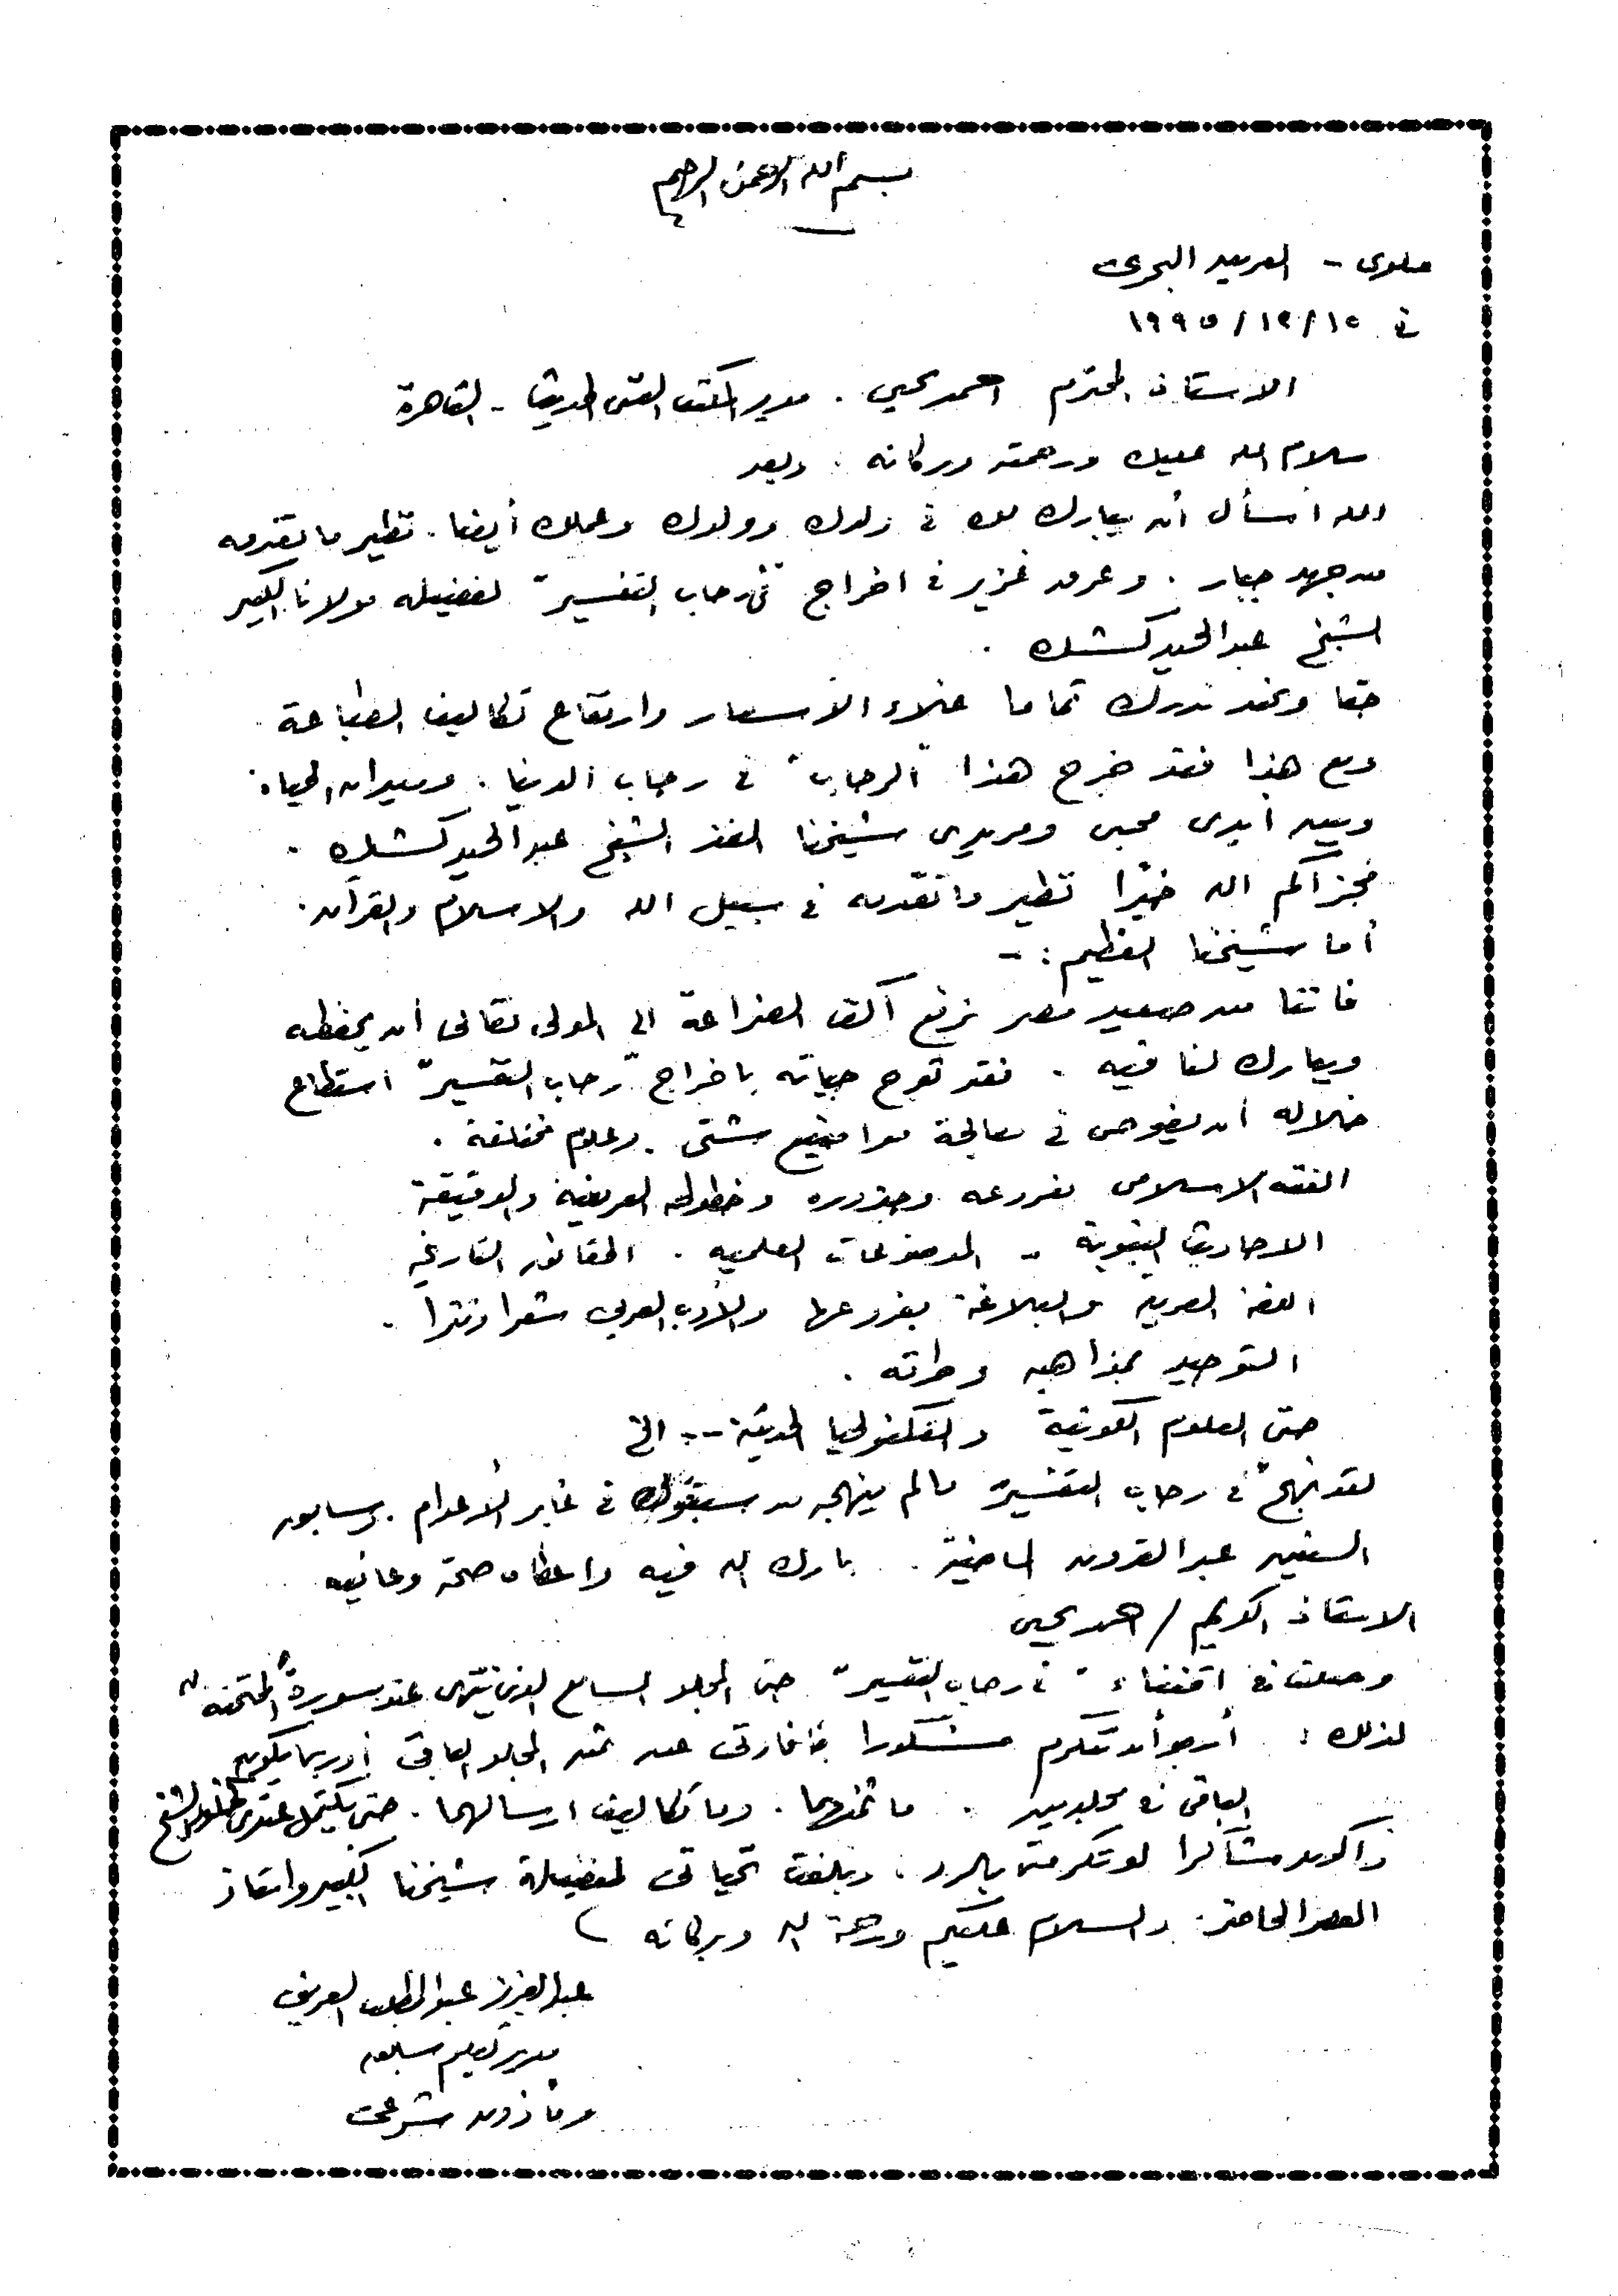 بسم الله الرحمن الرحيم
ملوى - البحرى
فى ١٥/١٢/١٩٩٥
الاستاذ المحترم احمد يحيى . مدير المكتب المصرى الحديث - القاهرة
سلام الله عليك ورحمته وبركاته . وبعد
الله أسأل أن يبارك لك فى ولدك وعملك أيضا . نظير ما تقدمه
من جهد جبار . وعرق غزير فى اخراج "فى رحاب التفسير" لفضيلة مولانا الكبير
الشيخ عبد الحميد كشك .
حقا ونحن ندرك تماما غلاء الاسعار وارتفاع تكاليف الطباعة
ومع هذا فقد خرج هذا "الرحاب" فى رحاب الدنيا . وميدان الحياة .
وبين أيدى محبى ومريدى شيخنا الفذ الشيخ عبد الحميد كشك .
فجزاكم الله خيرا نظير ما تقدمه فى سبيل الله والاسلام والقرآن .
أما شيخنا العظيم : -
فاننا من صعيد مصر نرفع أكف الضراعة الى المولى تعالى أن يحفظه
ويبارك لنا فيه . فقد توج حياته باخراج "رحاب التفسير" استطاع
خلاله أن يغوص فى معالجة مواضيع شتى . وعلوم مختلفة .
الفقه الاسلامى بفروعه وجذوره وخطوطه العريضة والدقيقة
الاحاديث النبوية - الموضوعات العلميه . الحقائق التاريخية
اللغة العربية والبلاغة بفروعها والأدب العربى شعرا ونثرا .
التوحيد بمذاهبه .
حتى العلوم الكونية والتكنولجيا الحديثة -- الخ
لقد نهج "فى رحاب التفسير" مالم ينهجه من سبقوه فى غابر الأعوام . وسابق
السنين عبر القرون الماضية . بارك الله فيه واعطاه صحة وعافيه
الاستاذ الكريم / احمد يحيى
وصلت فى اقتناء "فى رحاب التفسير" حتى المجلد السابع الذى ينتهى عند سورة "الممتحنة"
لذلك : أرجو أن تتكرم مشكورا بافادتى عن ثمن المجلد الباقى أو ربما يكون
الباقى فى مجلدين . ما ثمنهما . وما تكاليف ارسالهما . حتى يكتمل عندى الشيخ
وأكون شاكرا لو تكرمتم بالرد . وبلغت تحياتى لفضيلة شيخنا الكبير واستاذ
العصر الحاضر . والسلام عليكم ورحمة الله وبركاته
عبد العزيز عبد المطلب العريف
مدير تعليم سابق
ومأذون شرعى